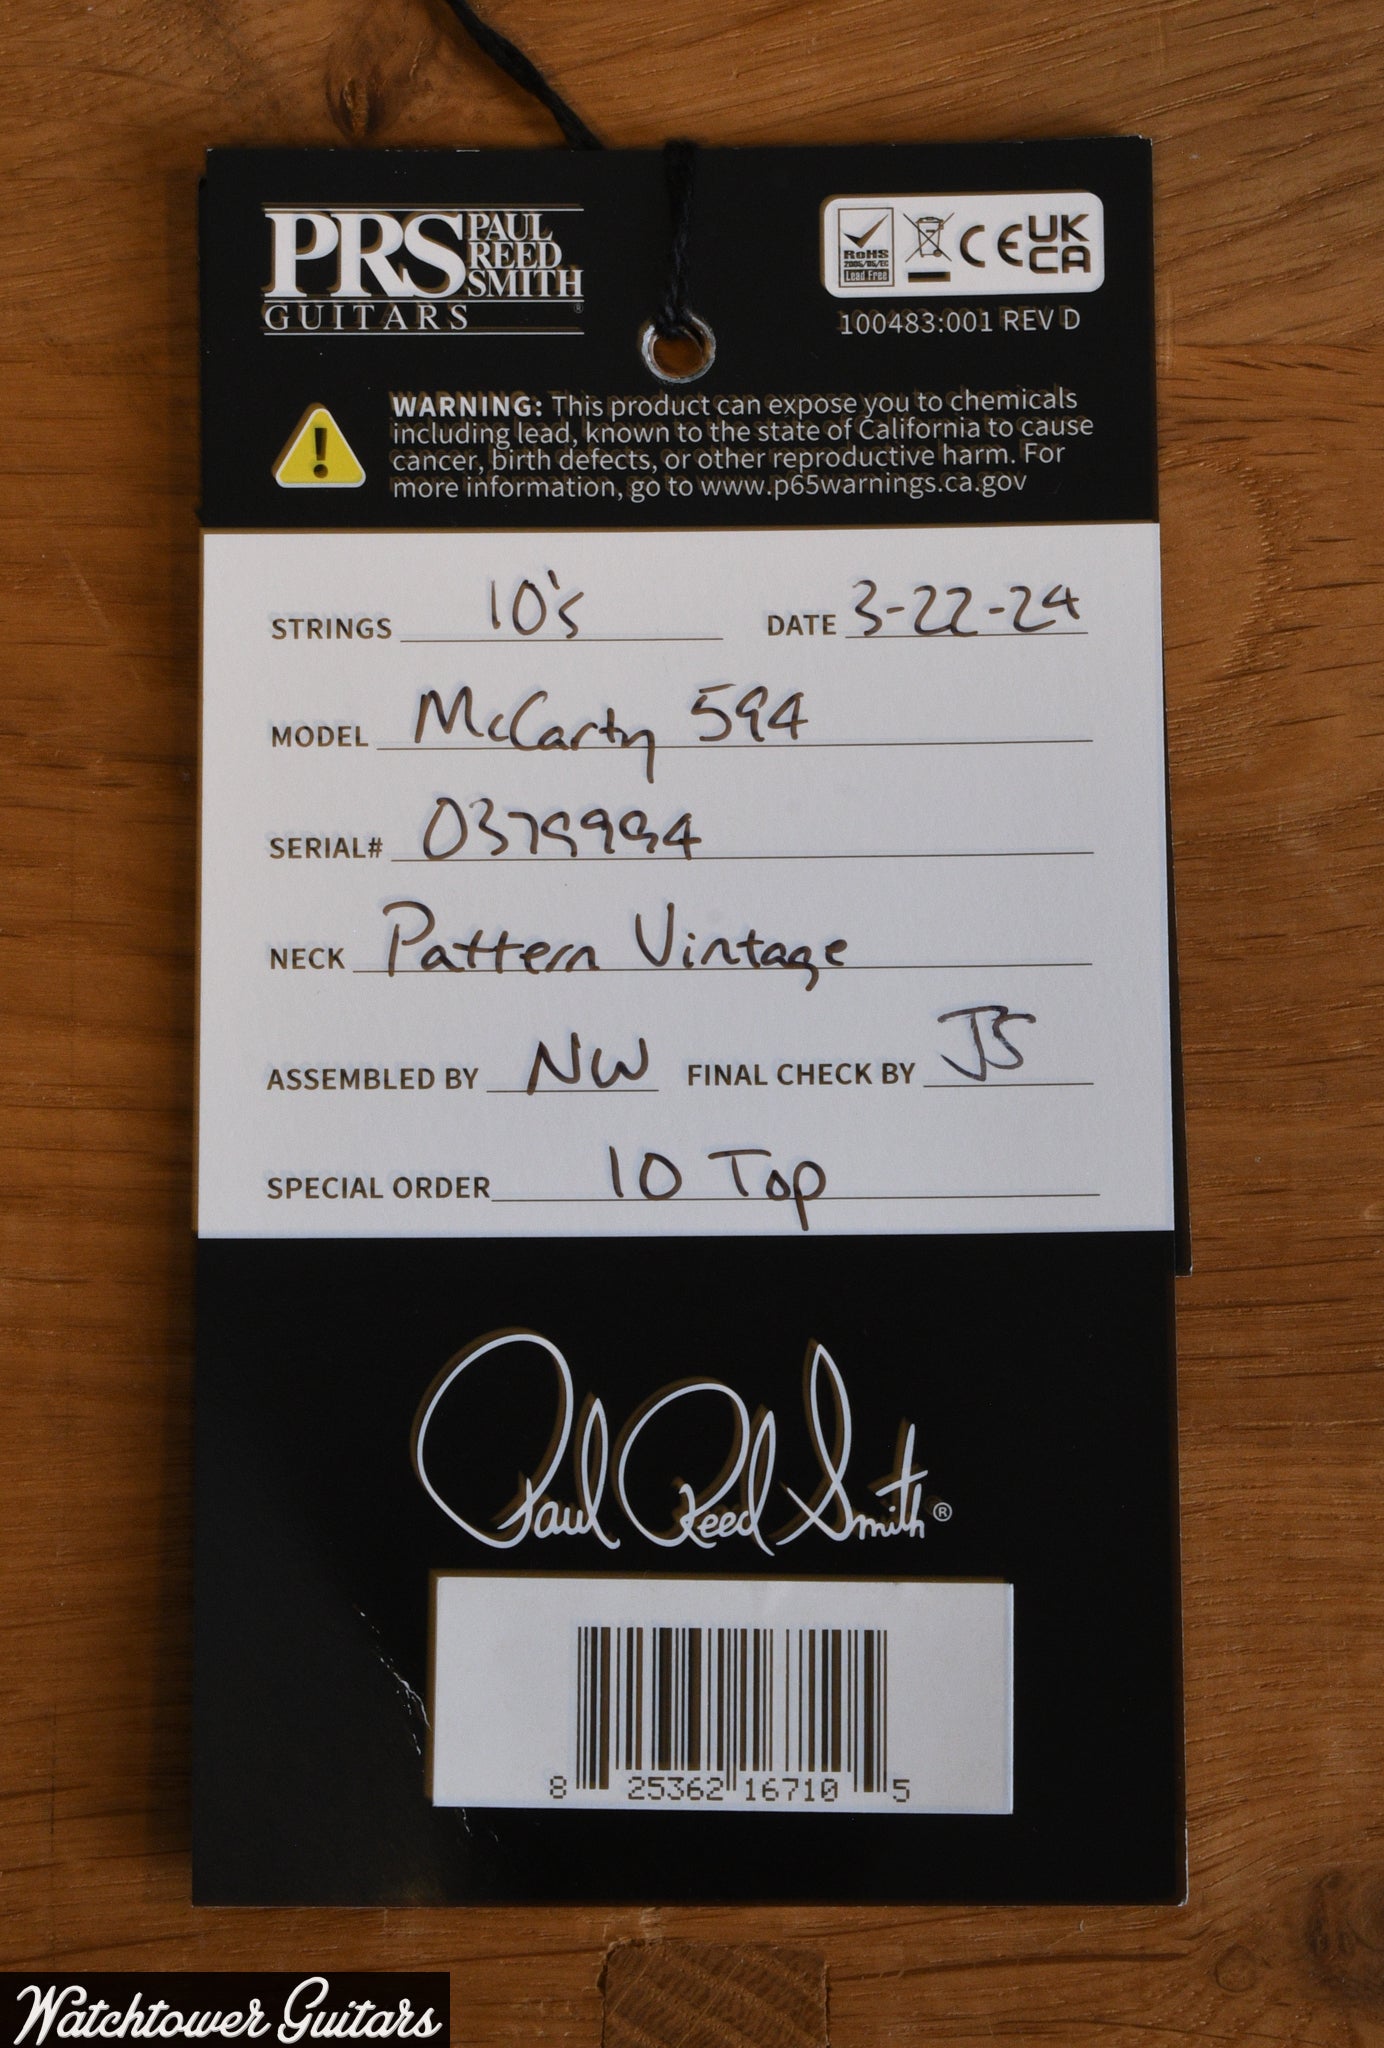 PRS PAUL REED SMITH
GUITARS ®
RoHS
2005/95/EC
Lead Free
CE UK CA
100483:001 REV D
WARNING: This product can expose you to chemicals
including lead, known to the state of California to cause
cancer, birth defects, or other reproductive harm. For
more information, go to www.p65warnings.ca.gov
STRINGS 10's DATE 3-22-24
MODEL McCarty 594
SERIAL# 0379994
NECK Pattern Vintage
ASSEMBLED BY NW FINAL CHECK BY JS
SPECIAL ORDER 10 Top
Paul Reed Smith ®
8 25362 16710 5
Watchtower Guitars